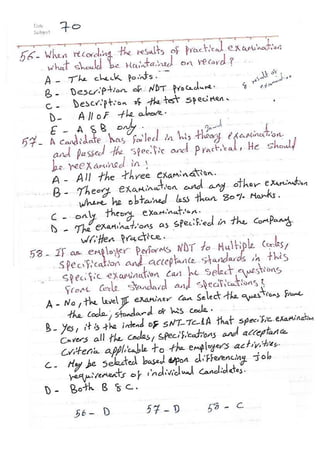 Date
Subject
70
56 - When recording the results of practical examination
what should be Maintained on record?
A - The check points.
& result of examination
B - Description of NDT procedure.
C - Description of the test specimen.
D - All of the above.
E - A & B only.
57 - A candidate has failed in his theory examination
and passed the specific and practical. He should
be reexamined in:
A - All the three examination.
B - Theory examination and any other examination
where he obtained less than 80% Marks.
C - only theory examination.
D - The examinations as specified in the Company
written practice.
58 - If an employer performs NDT to Multiple Codes,
specification and acceptance standards in this
specific examination can he select questions
from Code standard and specifications?
A - No, the level III examiner can select the questions from
the code, standard of his code.
B - Yes, it is the intend of SNT-TC-1A that specific examination
covers all the codes, specifications and acceptance
criteria applicable to the employers activities.
C - May be selected based upon differencing job
requirements of individual candidates.
D - Both B & C.
56 - D 57 - D 58 - C